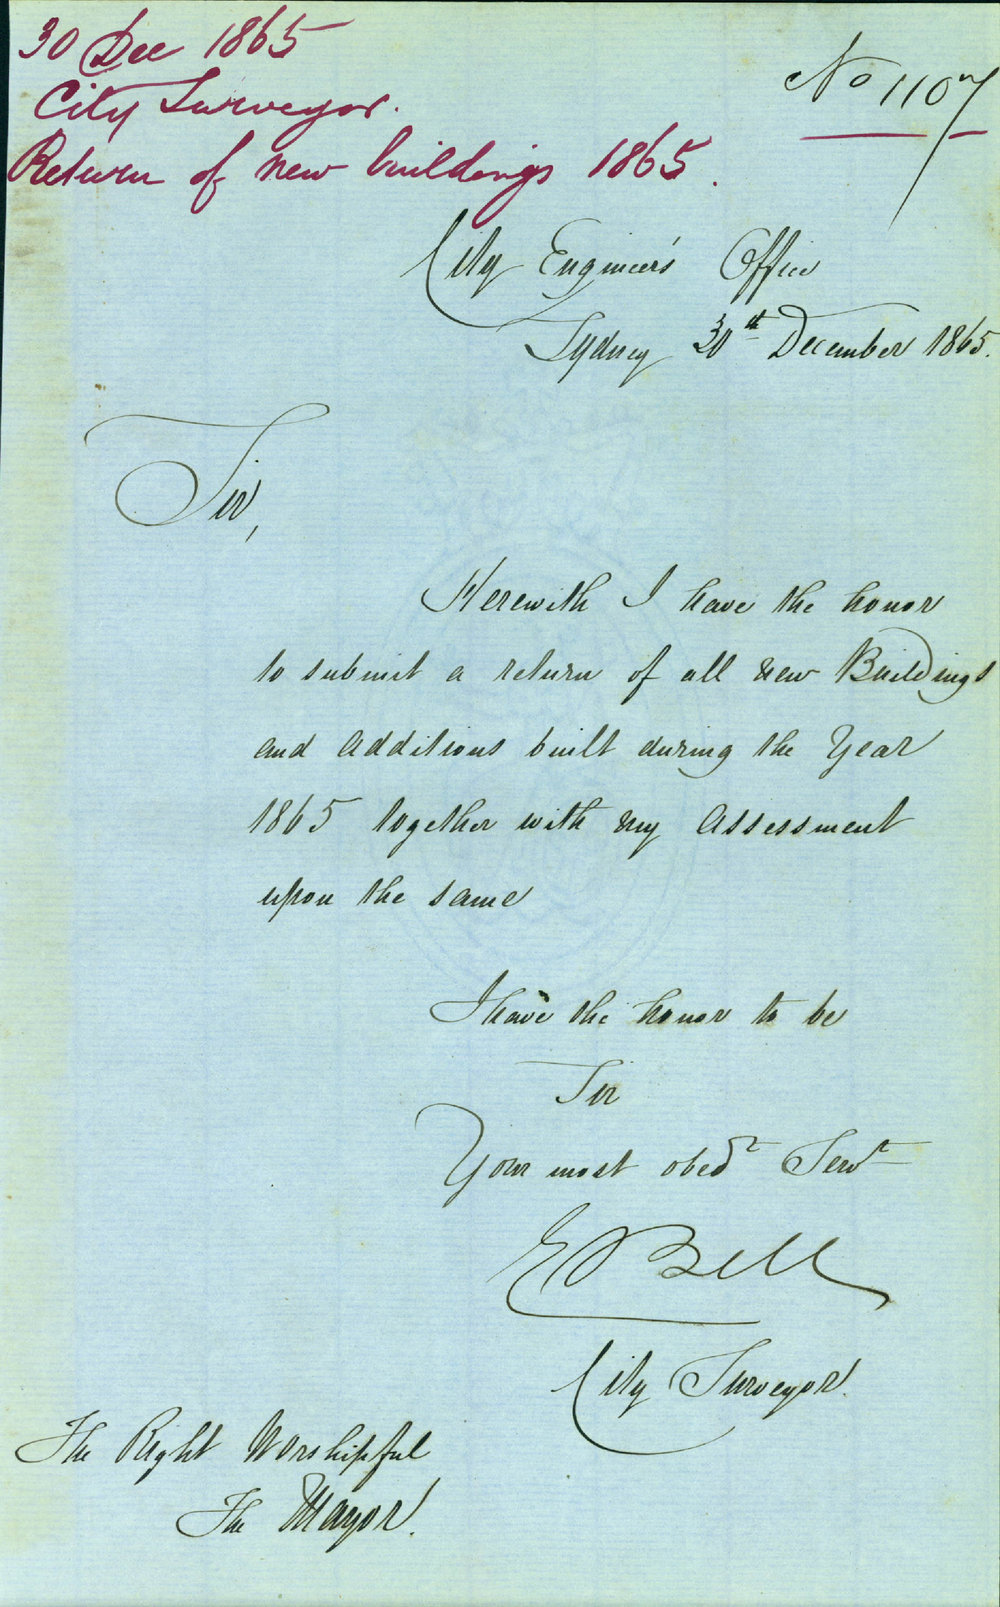 30 Dec 1865
City Surveyor.
Return of new buildings 1865.
No 1107
City Engineer's Office
Sydney 30th December 1865.
Sir,
Herewith I have the honor
to submit a return of all new Buildings
and Additions built during the Year
1865 together with my Assessment
upon the same
I have the honor to be
Sir
Your most obedt Servt
E Bell
City Surveyor.
The Right Worshipful
The Mayor.